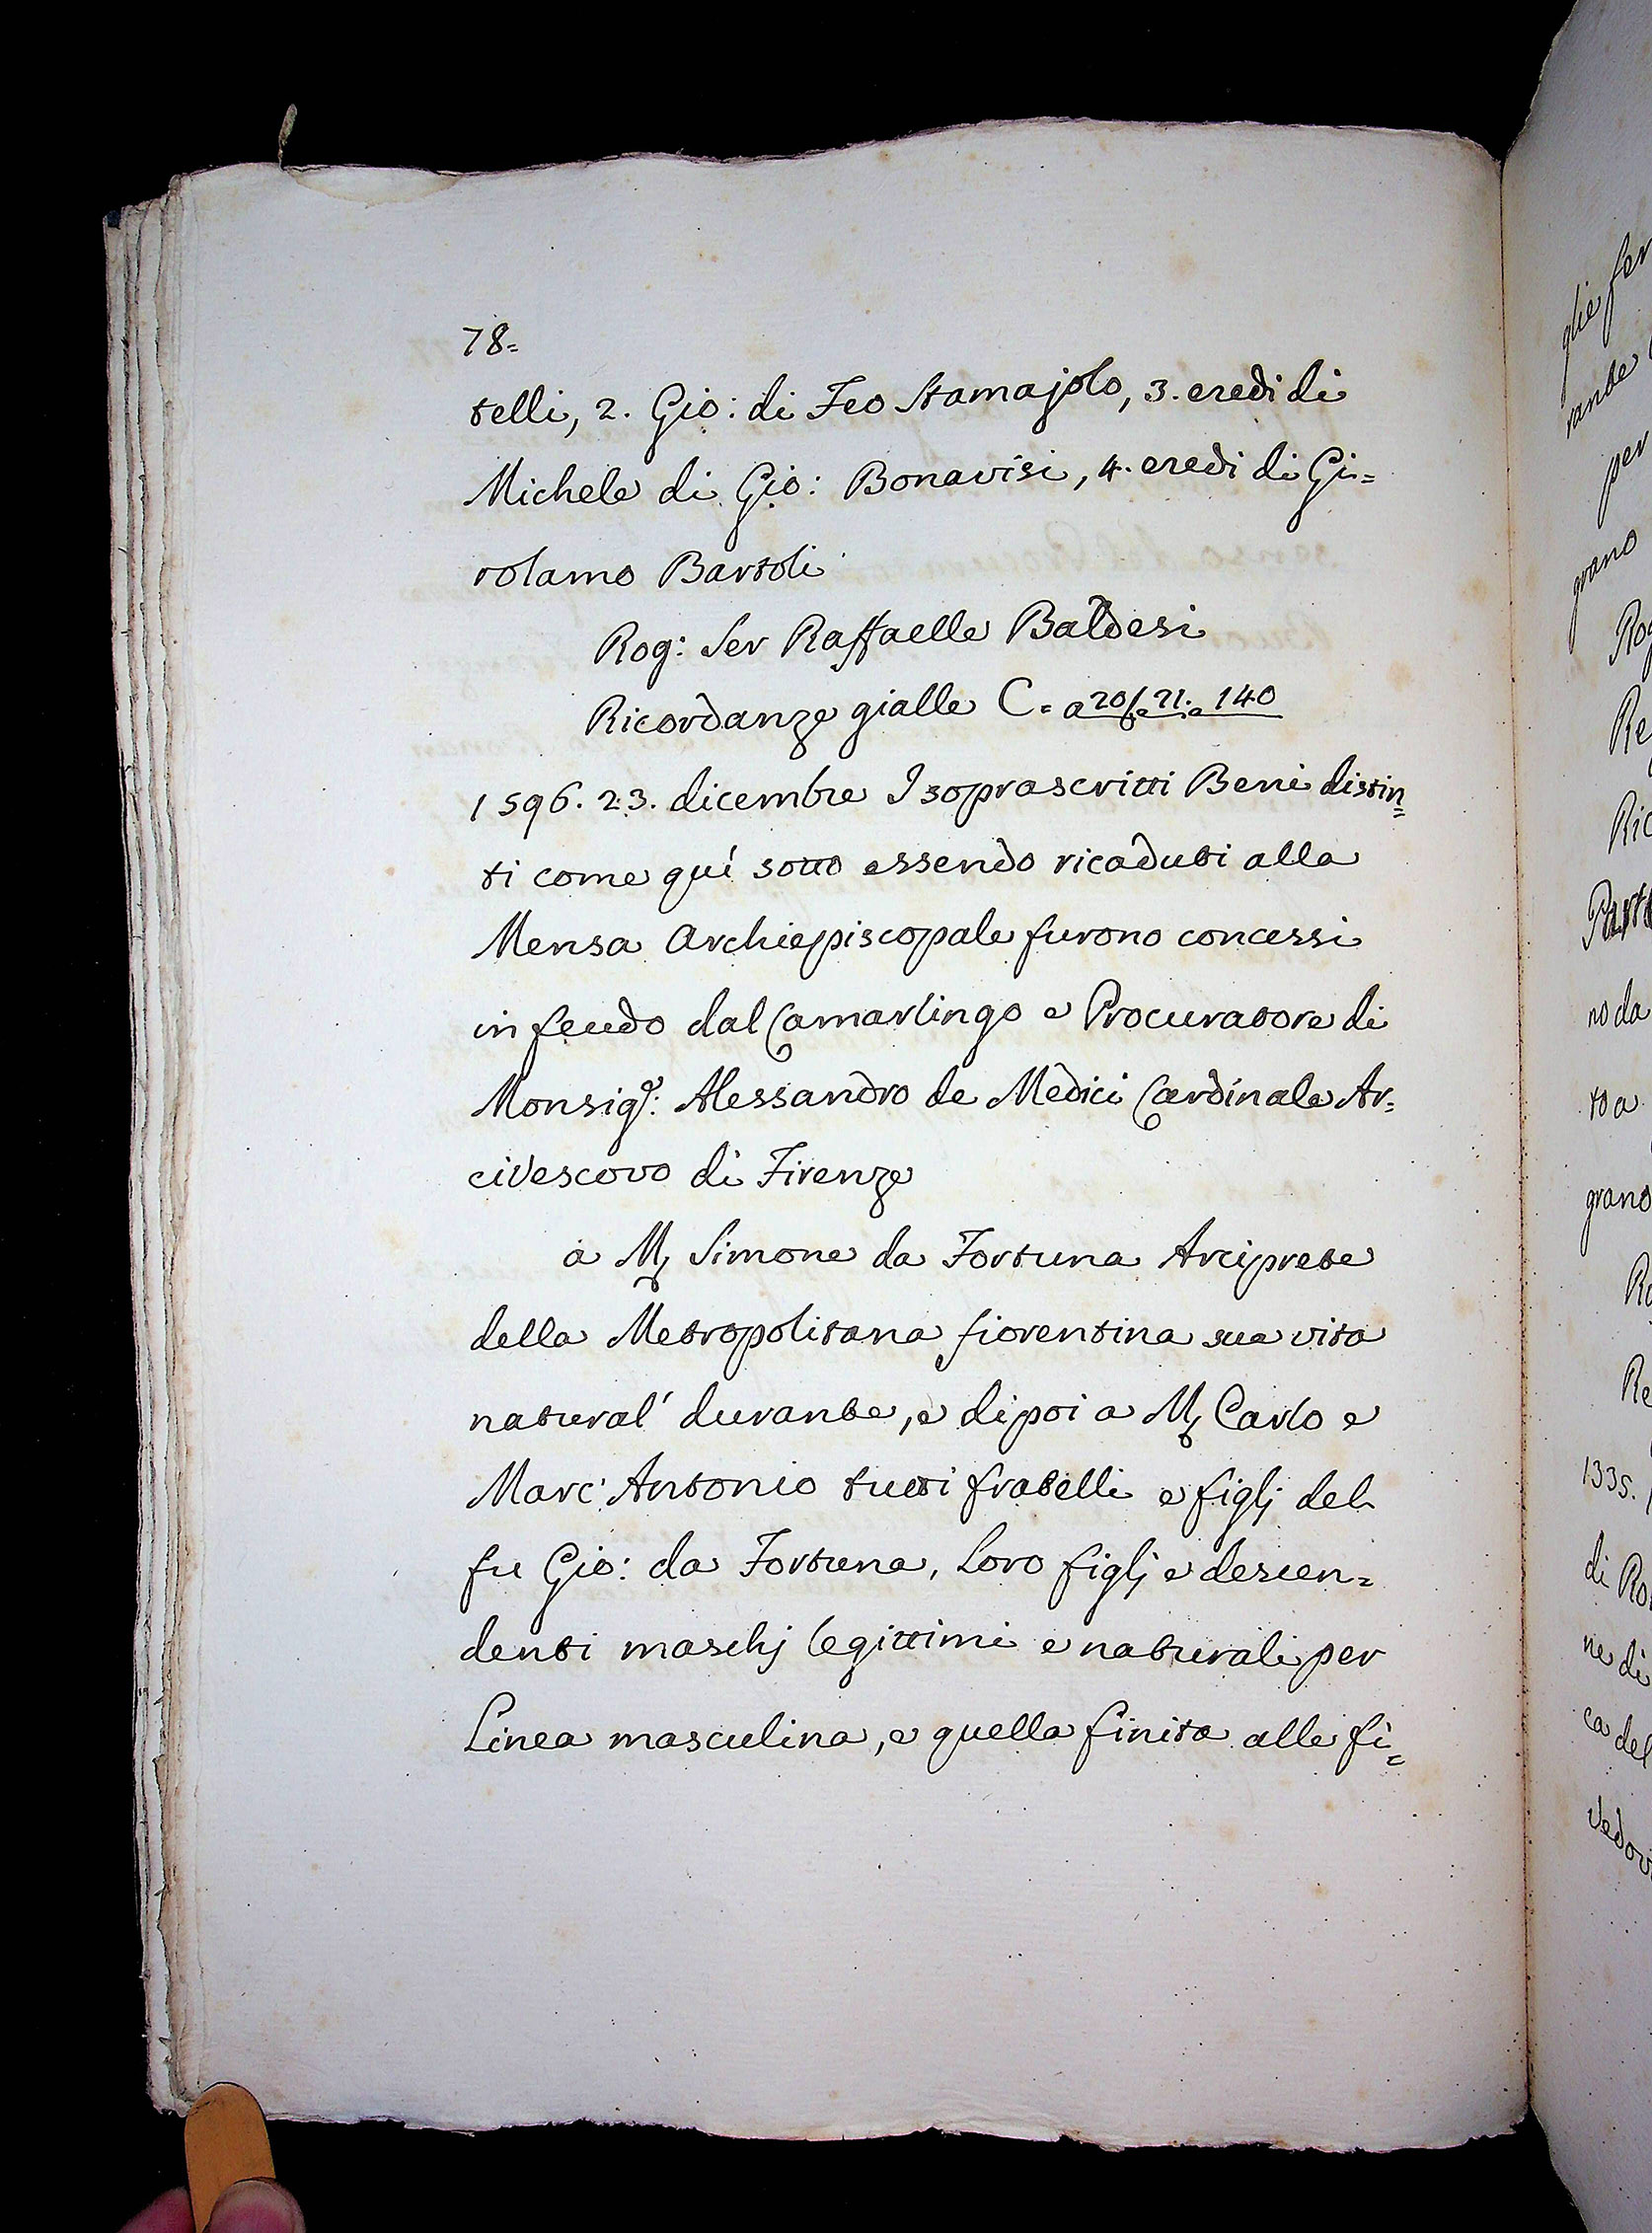 78=
telli, 2. Gio: di Feo Stamajolo, 3. eredi di
Michele di Gio: Bonavisi, 4. eredi di Gi=
rolamo Bartoli
Rog: Ser Raffaelle Baldesi
Ricordanze gialle C= a 20/ e 21: e 140
1596. 23. dicembre I soprascritti Beni distin=
ti come quì sotto essendo ricaduti alla
Mensa Archiepiscopale furono concessi
in feudo dal Camarlingo e Procuratore di
Monsigr: Alessandro de Medici Cardinale Ar=
civescovo di Firenze
a M, Simone da Fortuna Arciprete
della Metropolitana fiorentina sua vita
natural' durante, e dipoi a M, Carlo e
Marc' Antonio tutti fratelli e figlj del
fu Gio: da Fortuna, Loro figlj e descen=
denti maschj legittimi e naturali per
Linea masculina, e quella finita alle fi=
glie
per
grano
Re
Ric
no da
to a
grano
Re
1335.
di
ne di
ca del